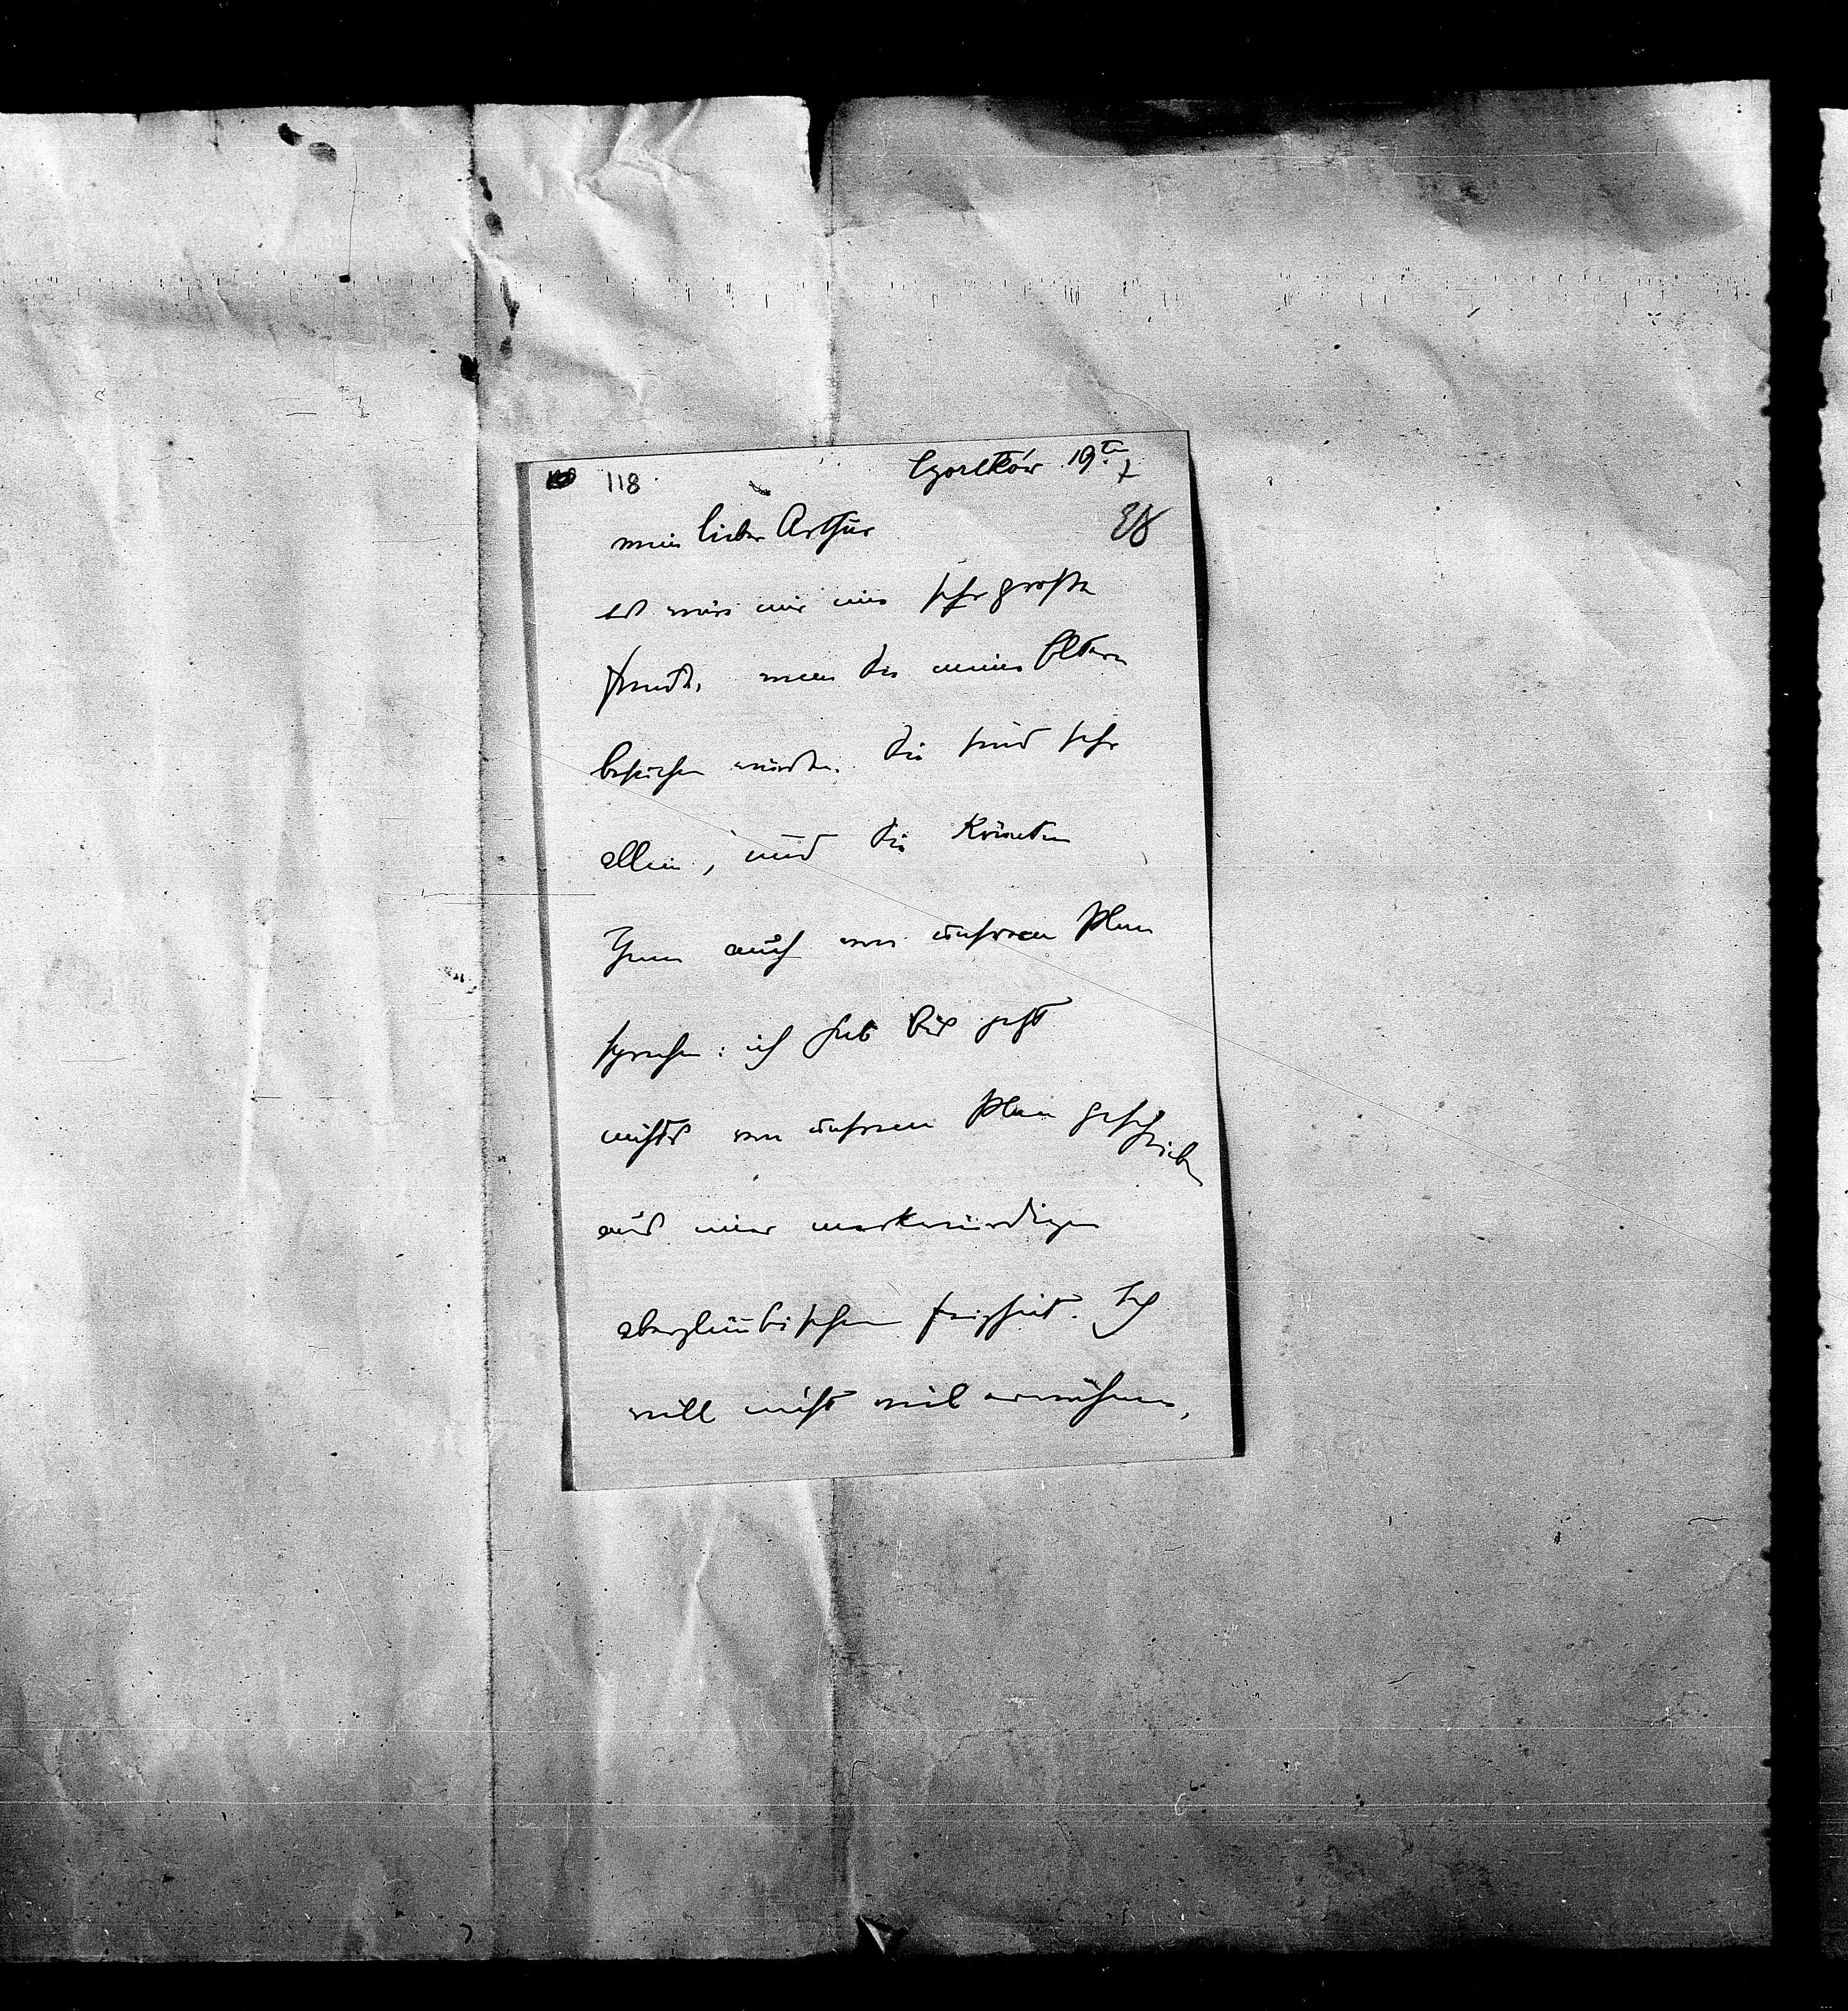 118
Czortków 19ten
98
mein lieber Arthur
es wäre mir eine sehr große
Freude, wenn Sie meine Eltern
besuchen würden. Sie sind sehr
allein, und Sie könnten
Ihnen auch von unserem Plan
sprechen: ich hab bis jetzt
nichts von unserem Plan geschrieben
aus einer merkwürdigen
abergläubischen Feigheit. Ich
will nicht viel erwähnen,